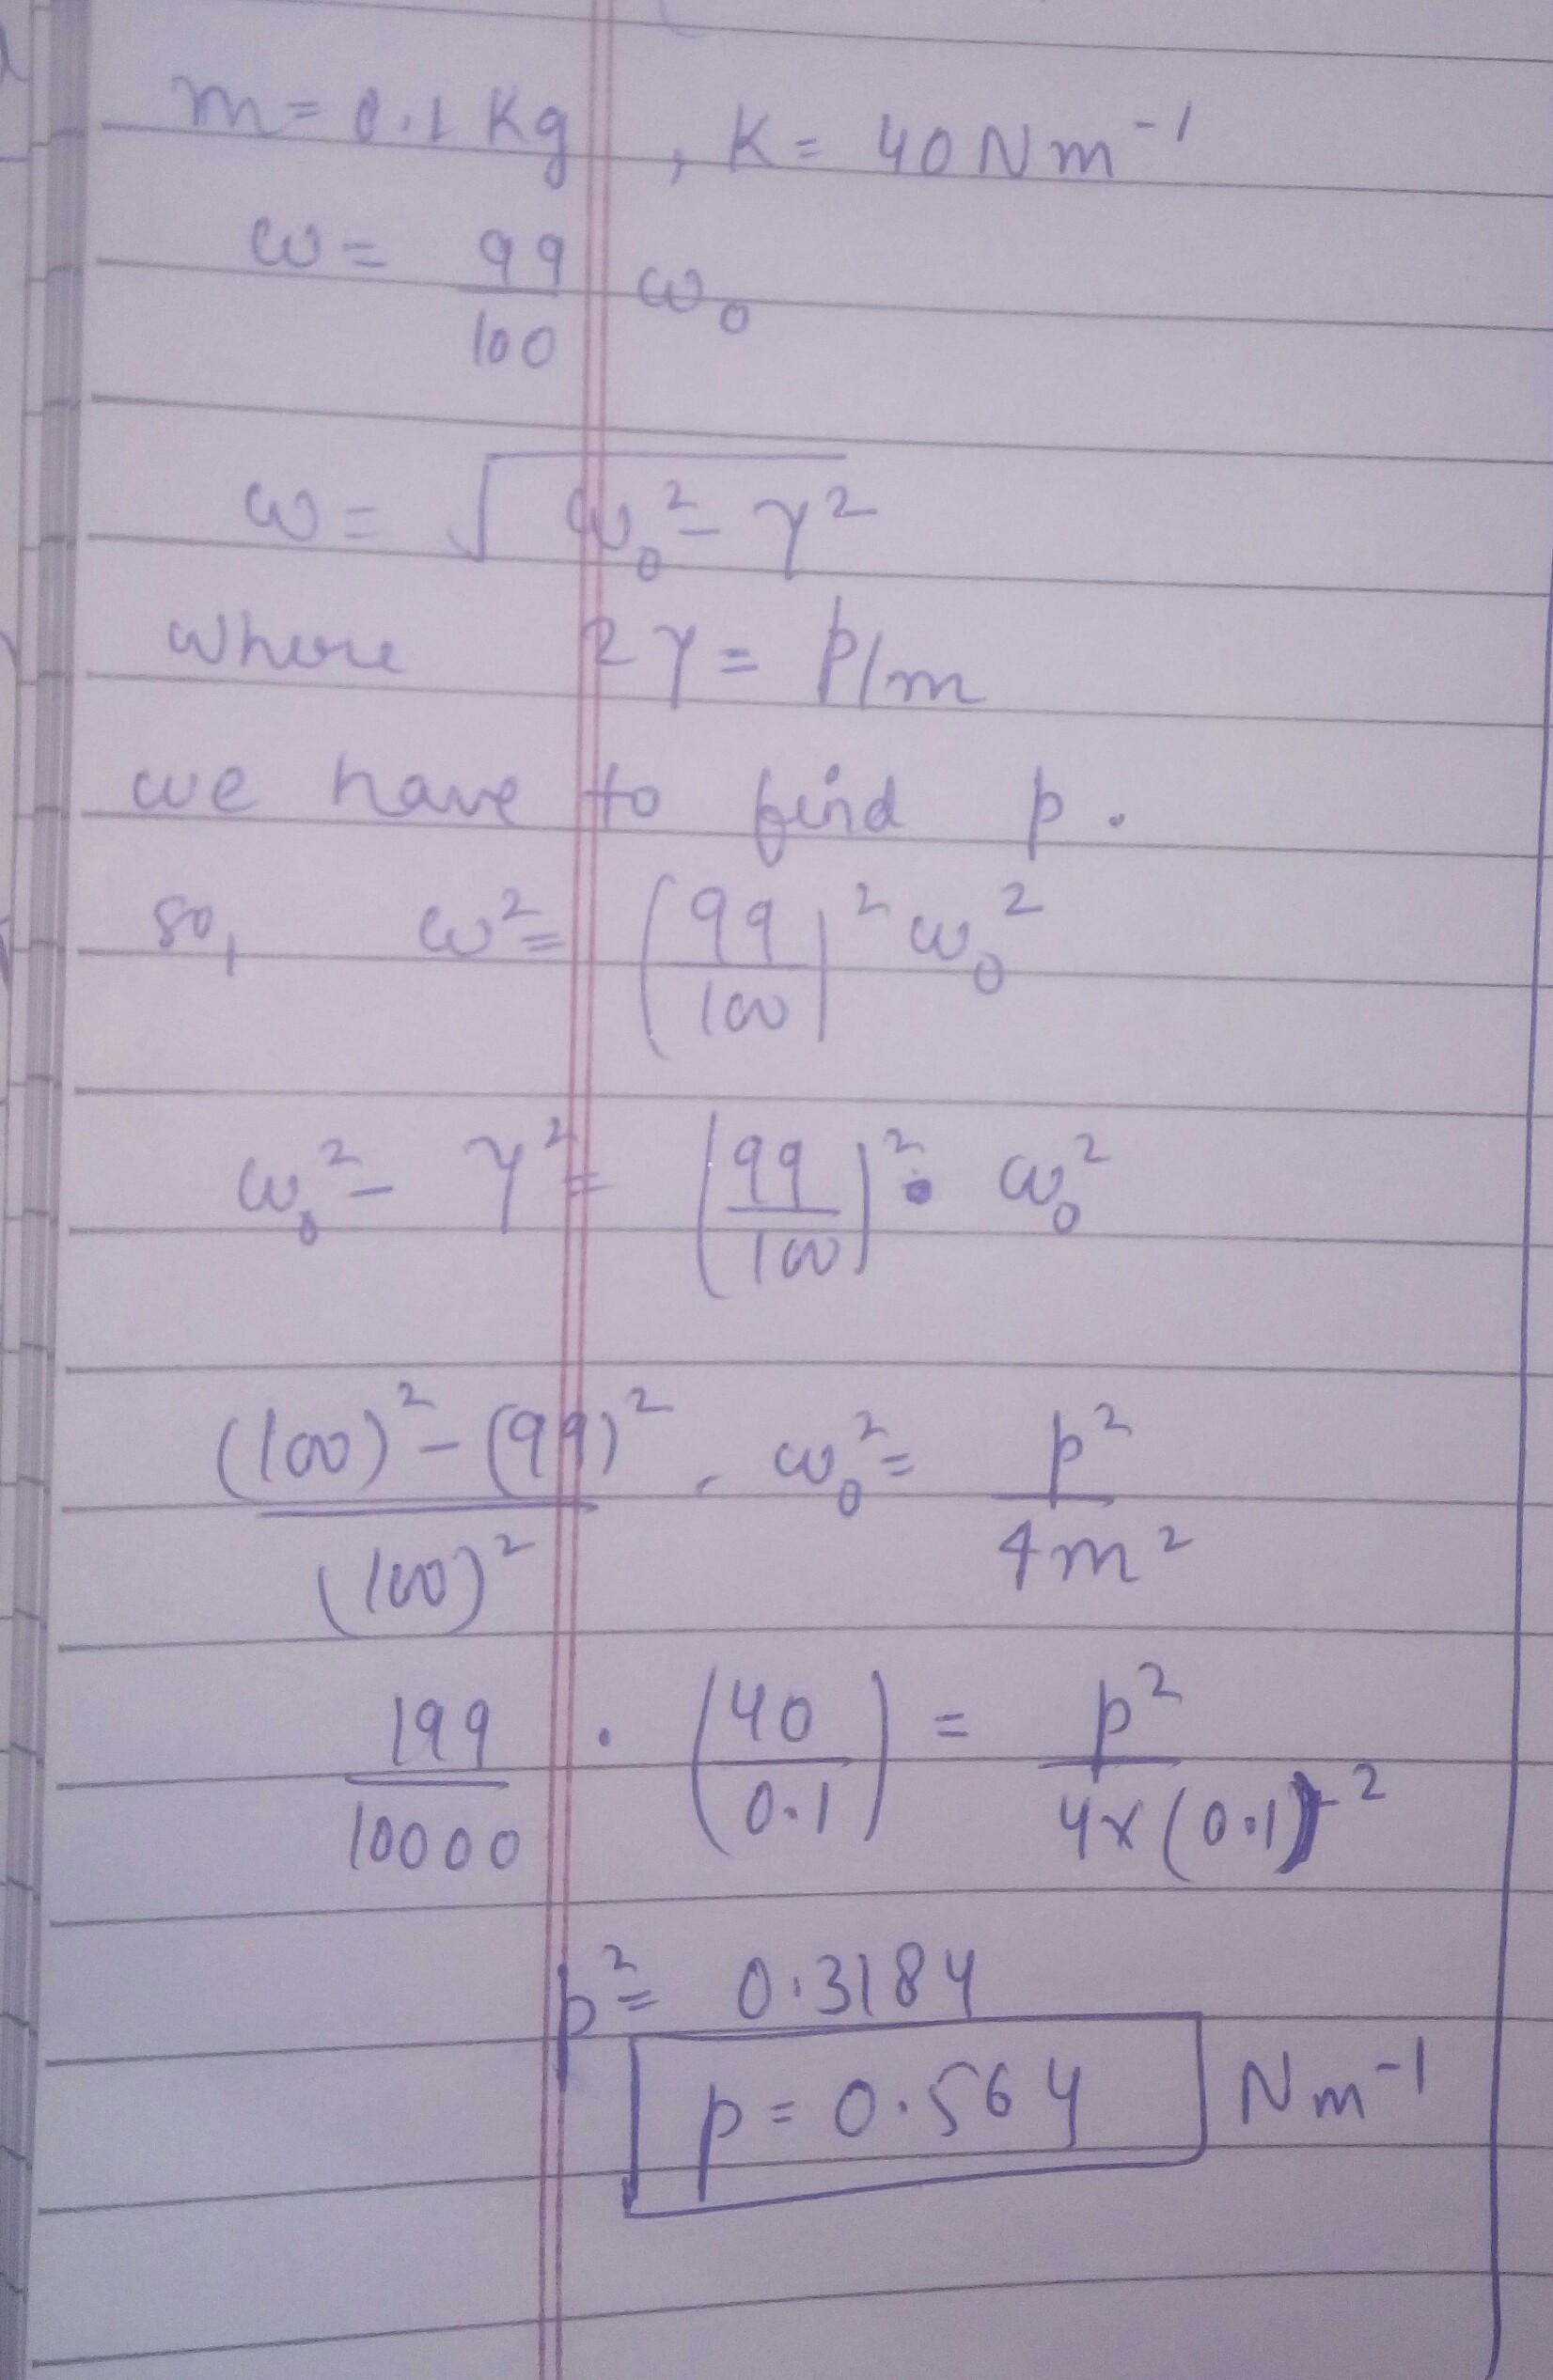 m = 0.1 Kg , K = 40 N m⁻¹
ω = 99/100 ω₀
ω = √(ω₀² - γ²)
where 2γ = p/m
we have to find p.
so, ω² = (99/100)² ω₀²
ω₀² - γ² = (99/100)² · ω₀²
((100)² - (99)²)/(100)² . ω₀² = p²/4m²
199/10000 . (40/0.1) = p²/4×(0.1)²
p² = 0.3184
p = 0.564 Nm⁻¹